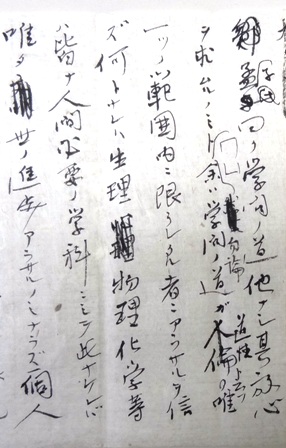 孟子曰ク学問ノ道他ナシ其放心
ヲ求ムルノミト余ハ学問ノ道ガ人倫ノ唯
勿論
一ツノ範囲内ニ限ラレタル者ニアラサルヲ信
ズ何トナレハ生理物理化学等
ハ皆ナ人間必要ノ学科ニシテ此ナケレバ
唯タ世ノ進歩アラサルノミナラズ個人